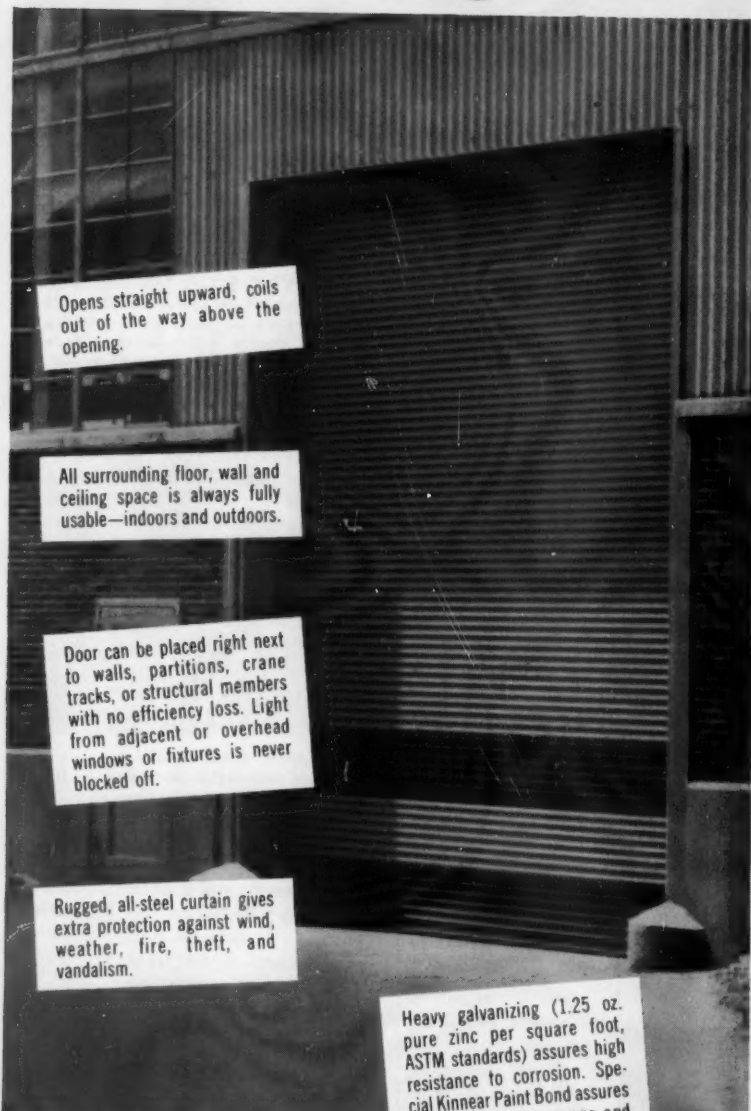 Opens straight upward, coils
out of the way above the
opening.
All surrounding floor, wall and
ceiling space is always fully
usable—indoors and outdoors.
Door can be placed right next
to walls, partitions, crane
tracks, or structural members
with no efficiency loss. Light
from adjacent or overhead
windows or fixtures is never
blocked off.
Rugged, all-steel curtain gives
extra protection against wind,
weather, fire, theft, and
vandalism.
Heavy galvanizing (1.25 oz.
pure zinc per square foot,
ASTM standards) assures high
resistance to corrosion. Spe-
cial Kinnear Paint Bond assures
and